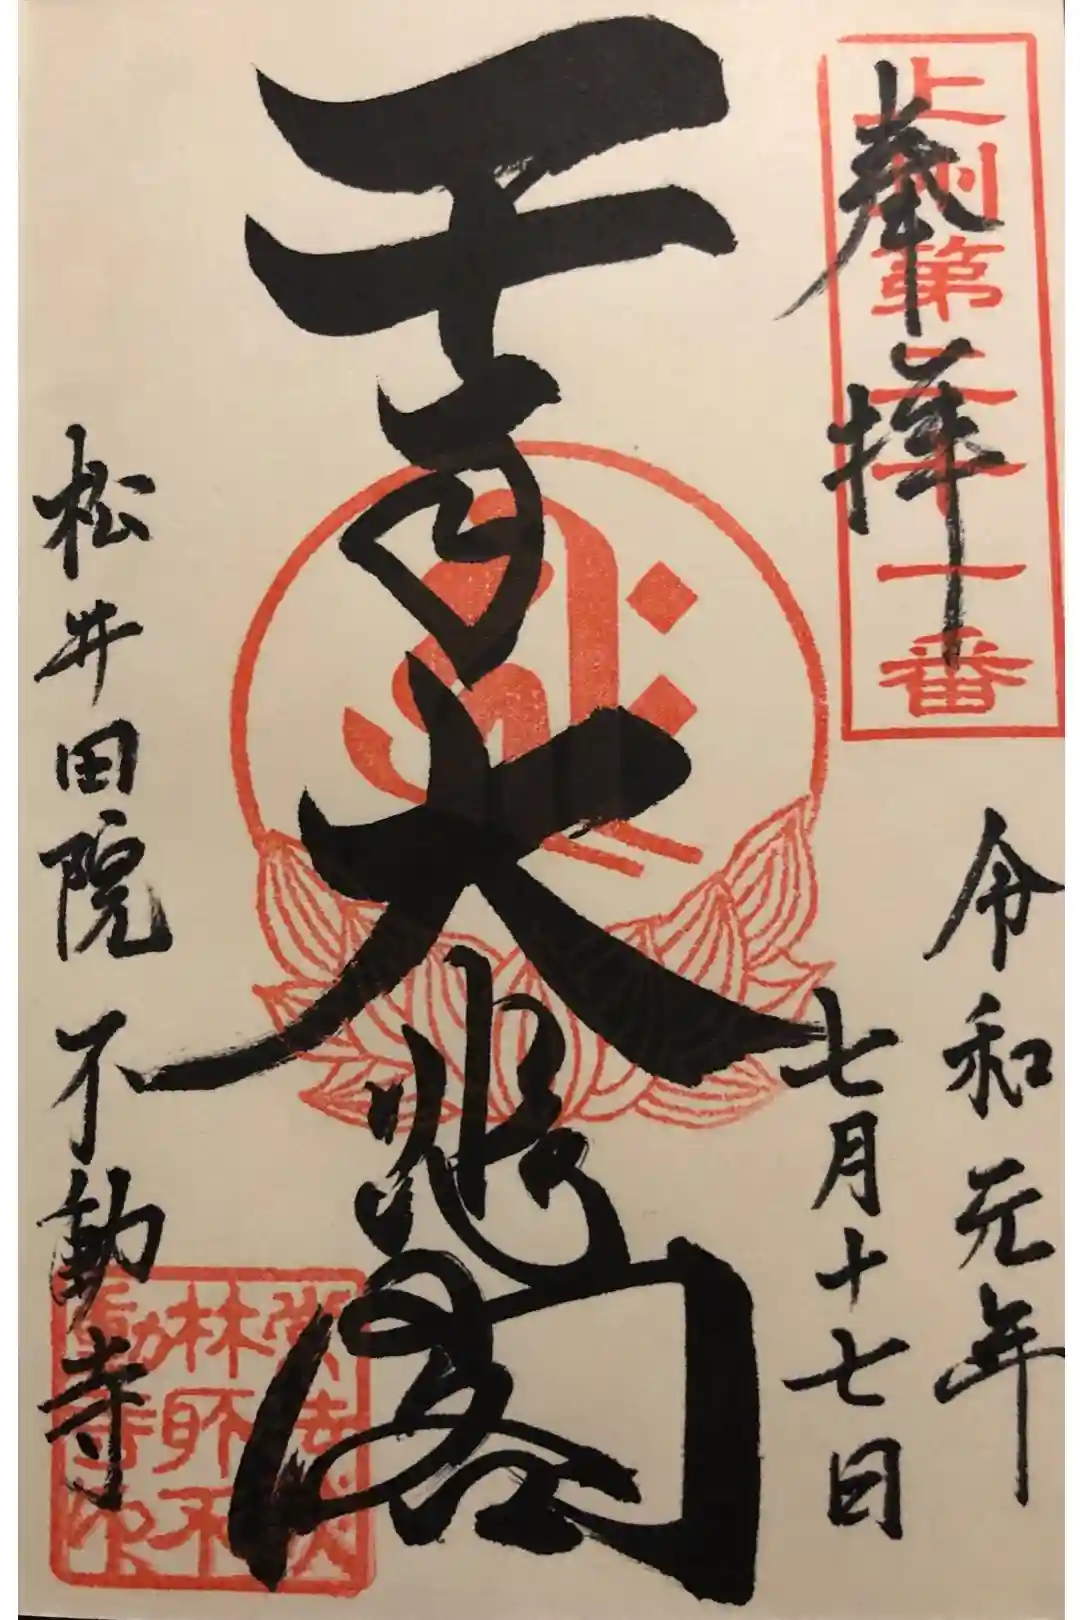 上州第二十一番
奉拝
令和元年
七月十七日
千手大悲閣
松井田院 不動寺
林師不
動寺印